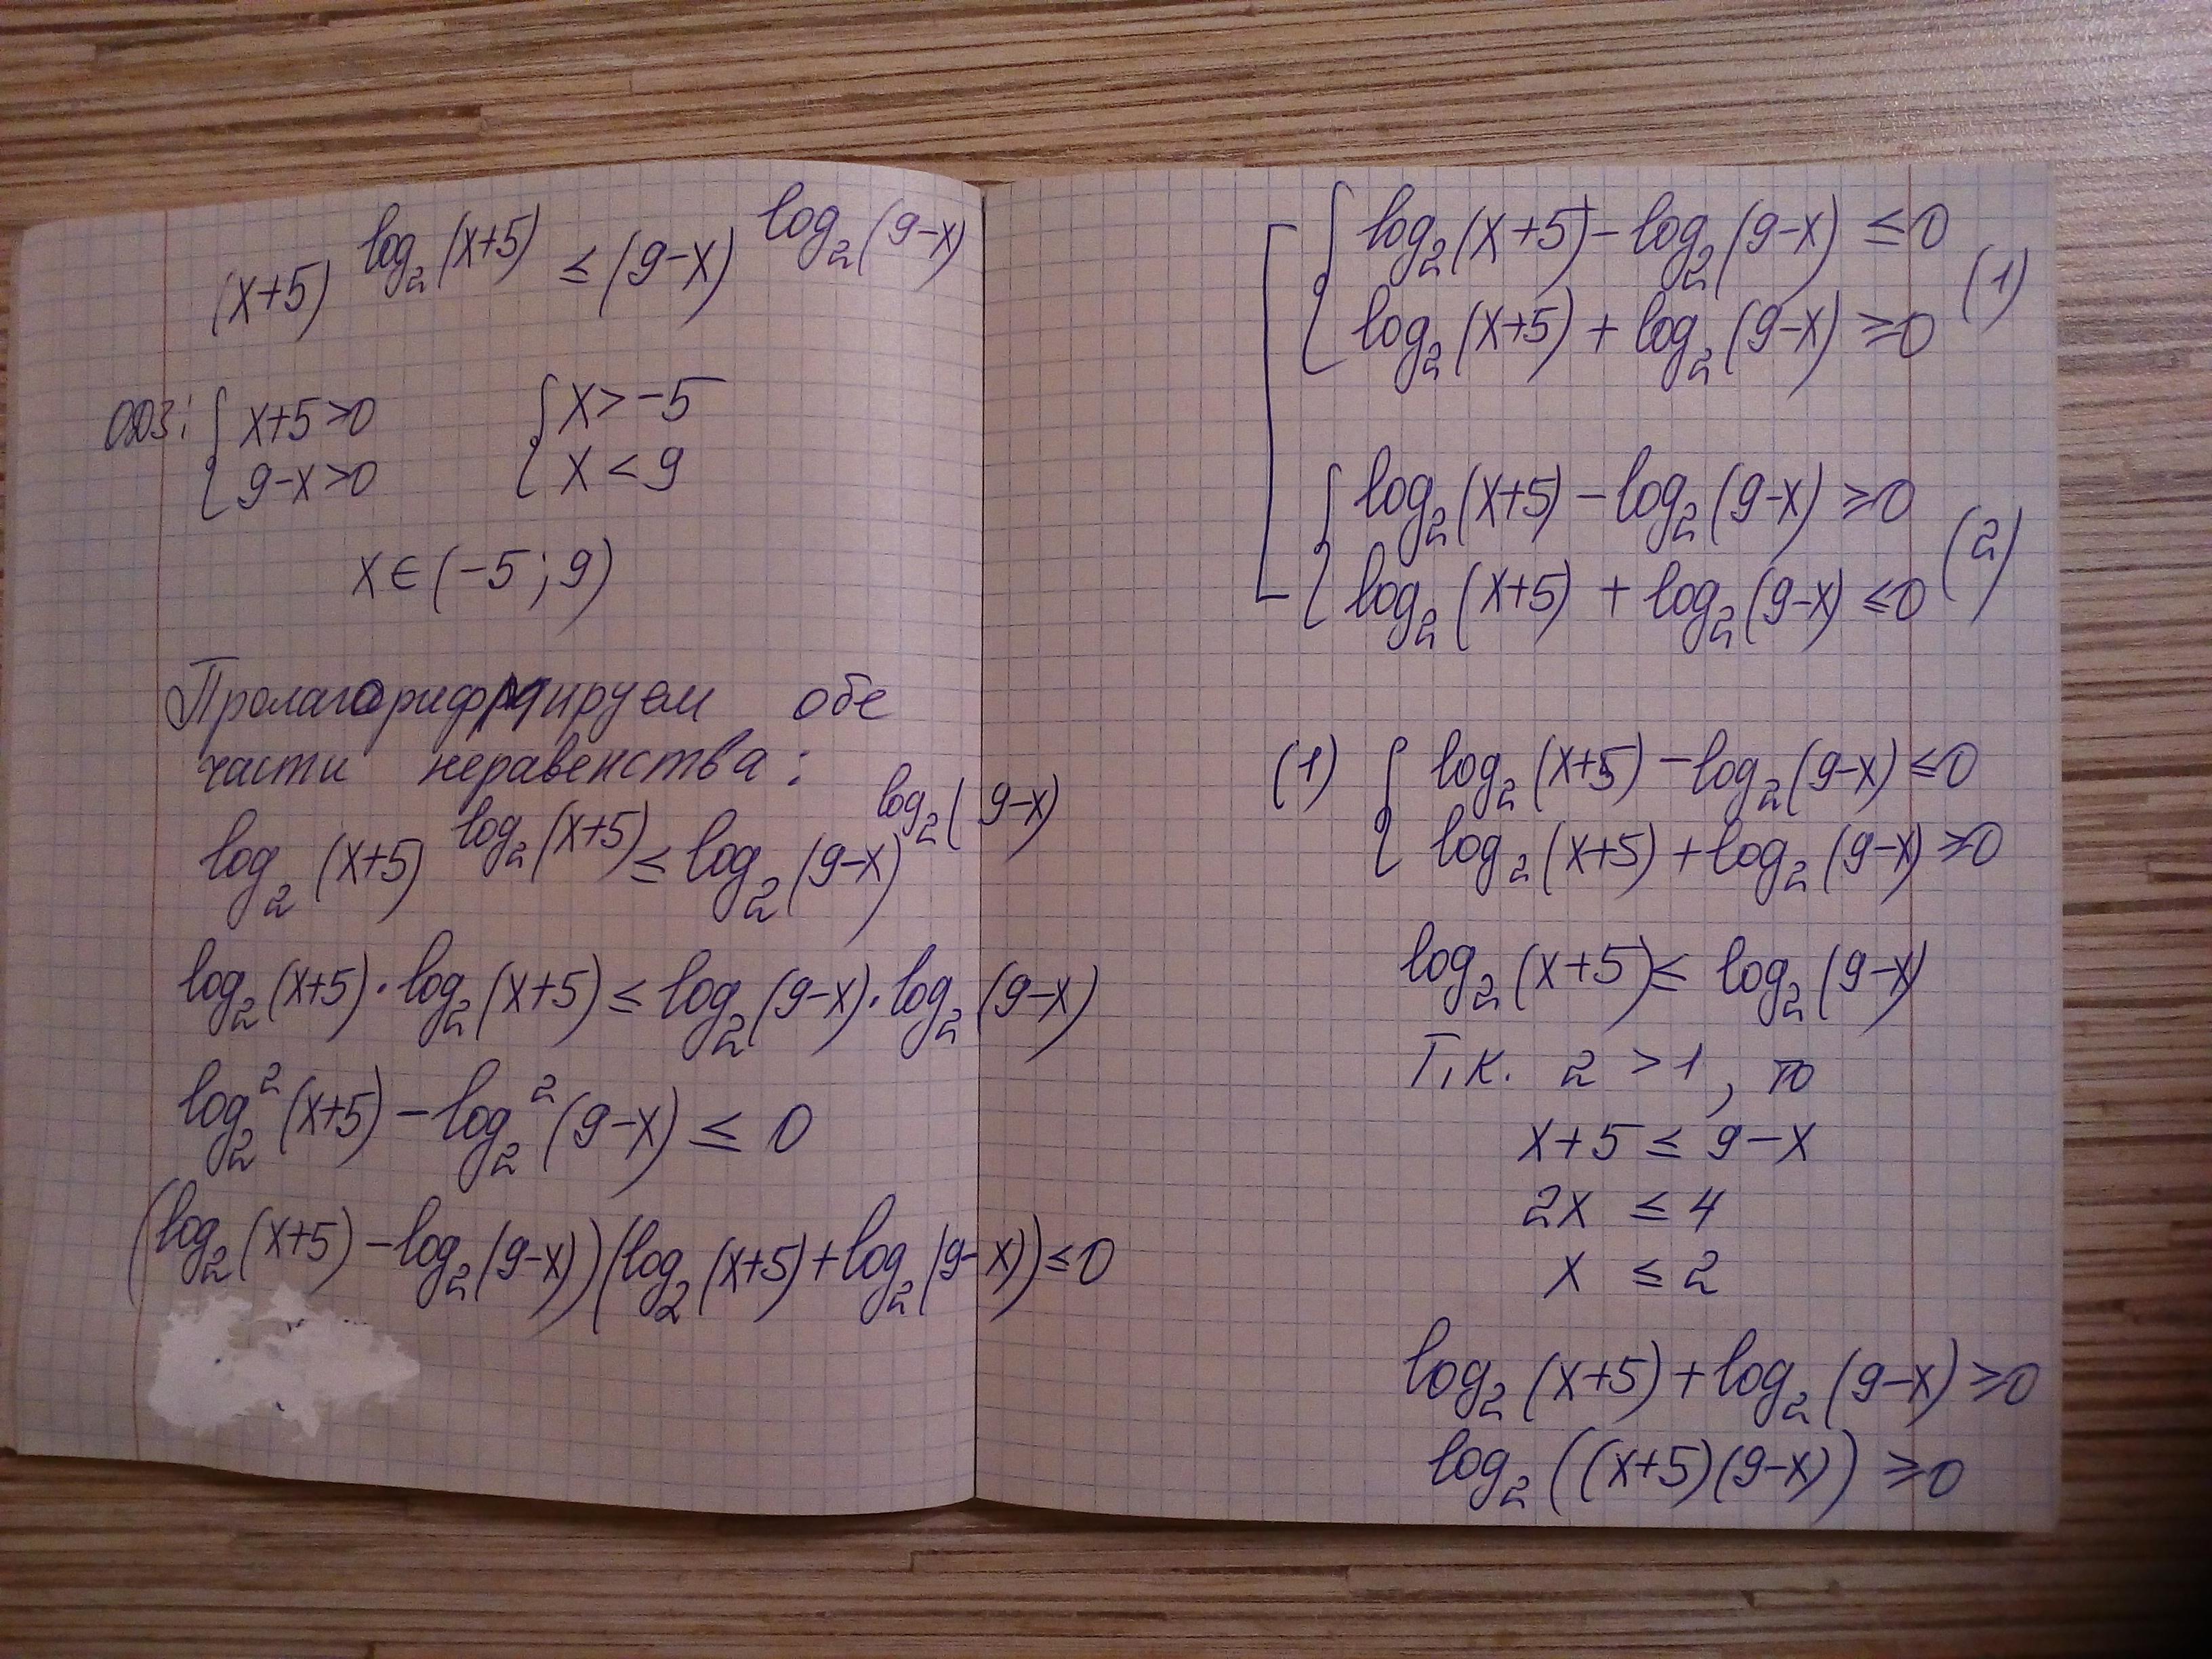 (x+5)^log₂(x+5) ≤ (9-x)^log₂(9-x)
ОДЗ: { x+5>0 { x>-5
{ 9-x>0 { x<9
x∈(-5;9)
Пролагорифмируем обе
части неравенства:
log₂(x+5)^log₂(x+5) ≤ log₂(9-x)^log₂(9-x)
log₂(x+5)·log₂(x+5) ≤ log₂(9-x)·log₂(9-x)
log₂²(x+5) - log₂²(9-x) ≤ 0
(log₂(x+5) - log₂(9-x))(log₂(x+5) + log₂(9-x)) ≤ 0
[ { log₂(x+5) - log₂(9-x) ≤ 0
{ log₂(x+5) + log₂(9-x) ≥ 0 (1)
{ log₂(x+5) - log₂(9-x) ≥ 0
{ log₂(x+5) + log₂(9-x) ≤ 0 (2)
(1) { log₂(x+5) - log₂(9-x) ≤ 0
{ log₂(x+5) + log₂(9-x) ≥ 0
log₂(x+5) ≤ log₂(9-x)
Т.к. 2 > 1, то
x+5 ≤ 9-x
2x ≤ 4
x ≤ 2
log₂(x+5) + log₂(9-x) ≥ 0
log₂((x+5)(9-x)) ≥ 0